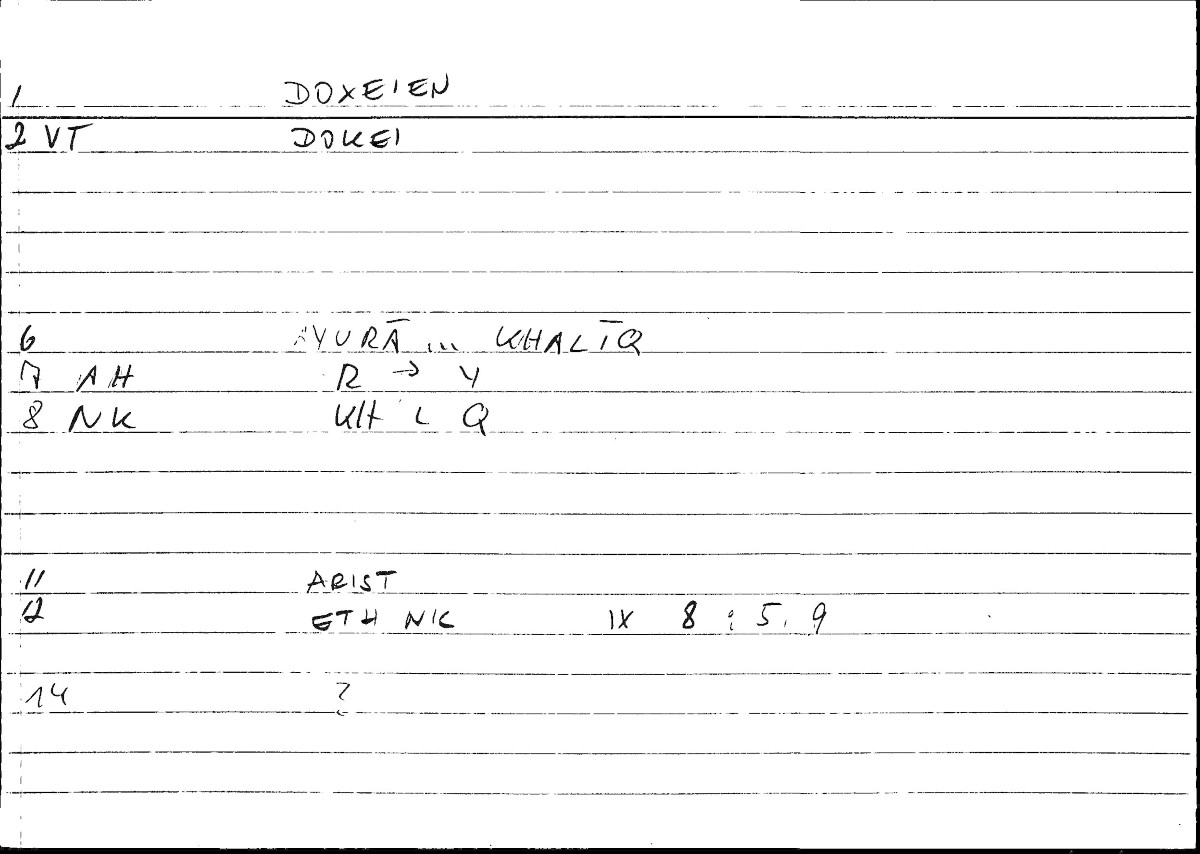 1 DOXEIEN
2 VT DOKEI
6 AYURĀ ... KHALĪQ
7 AH R → Y
8 NK KH L Q
11 ARIST
12 ETH NK IX 8 : 5. 9
14 ?